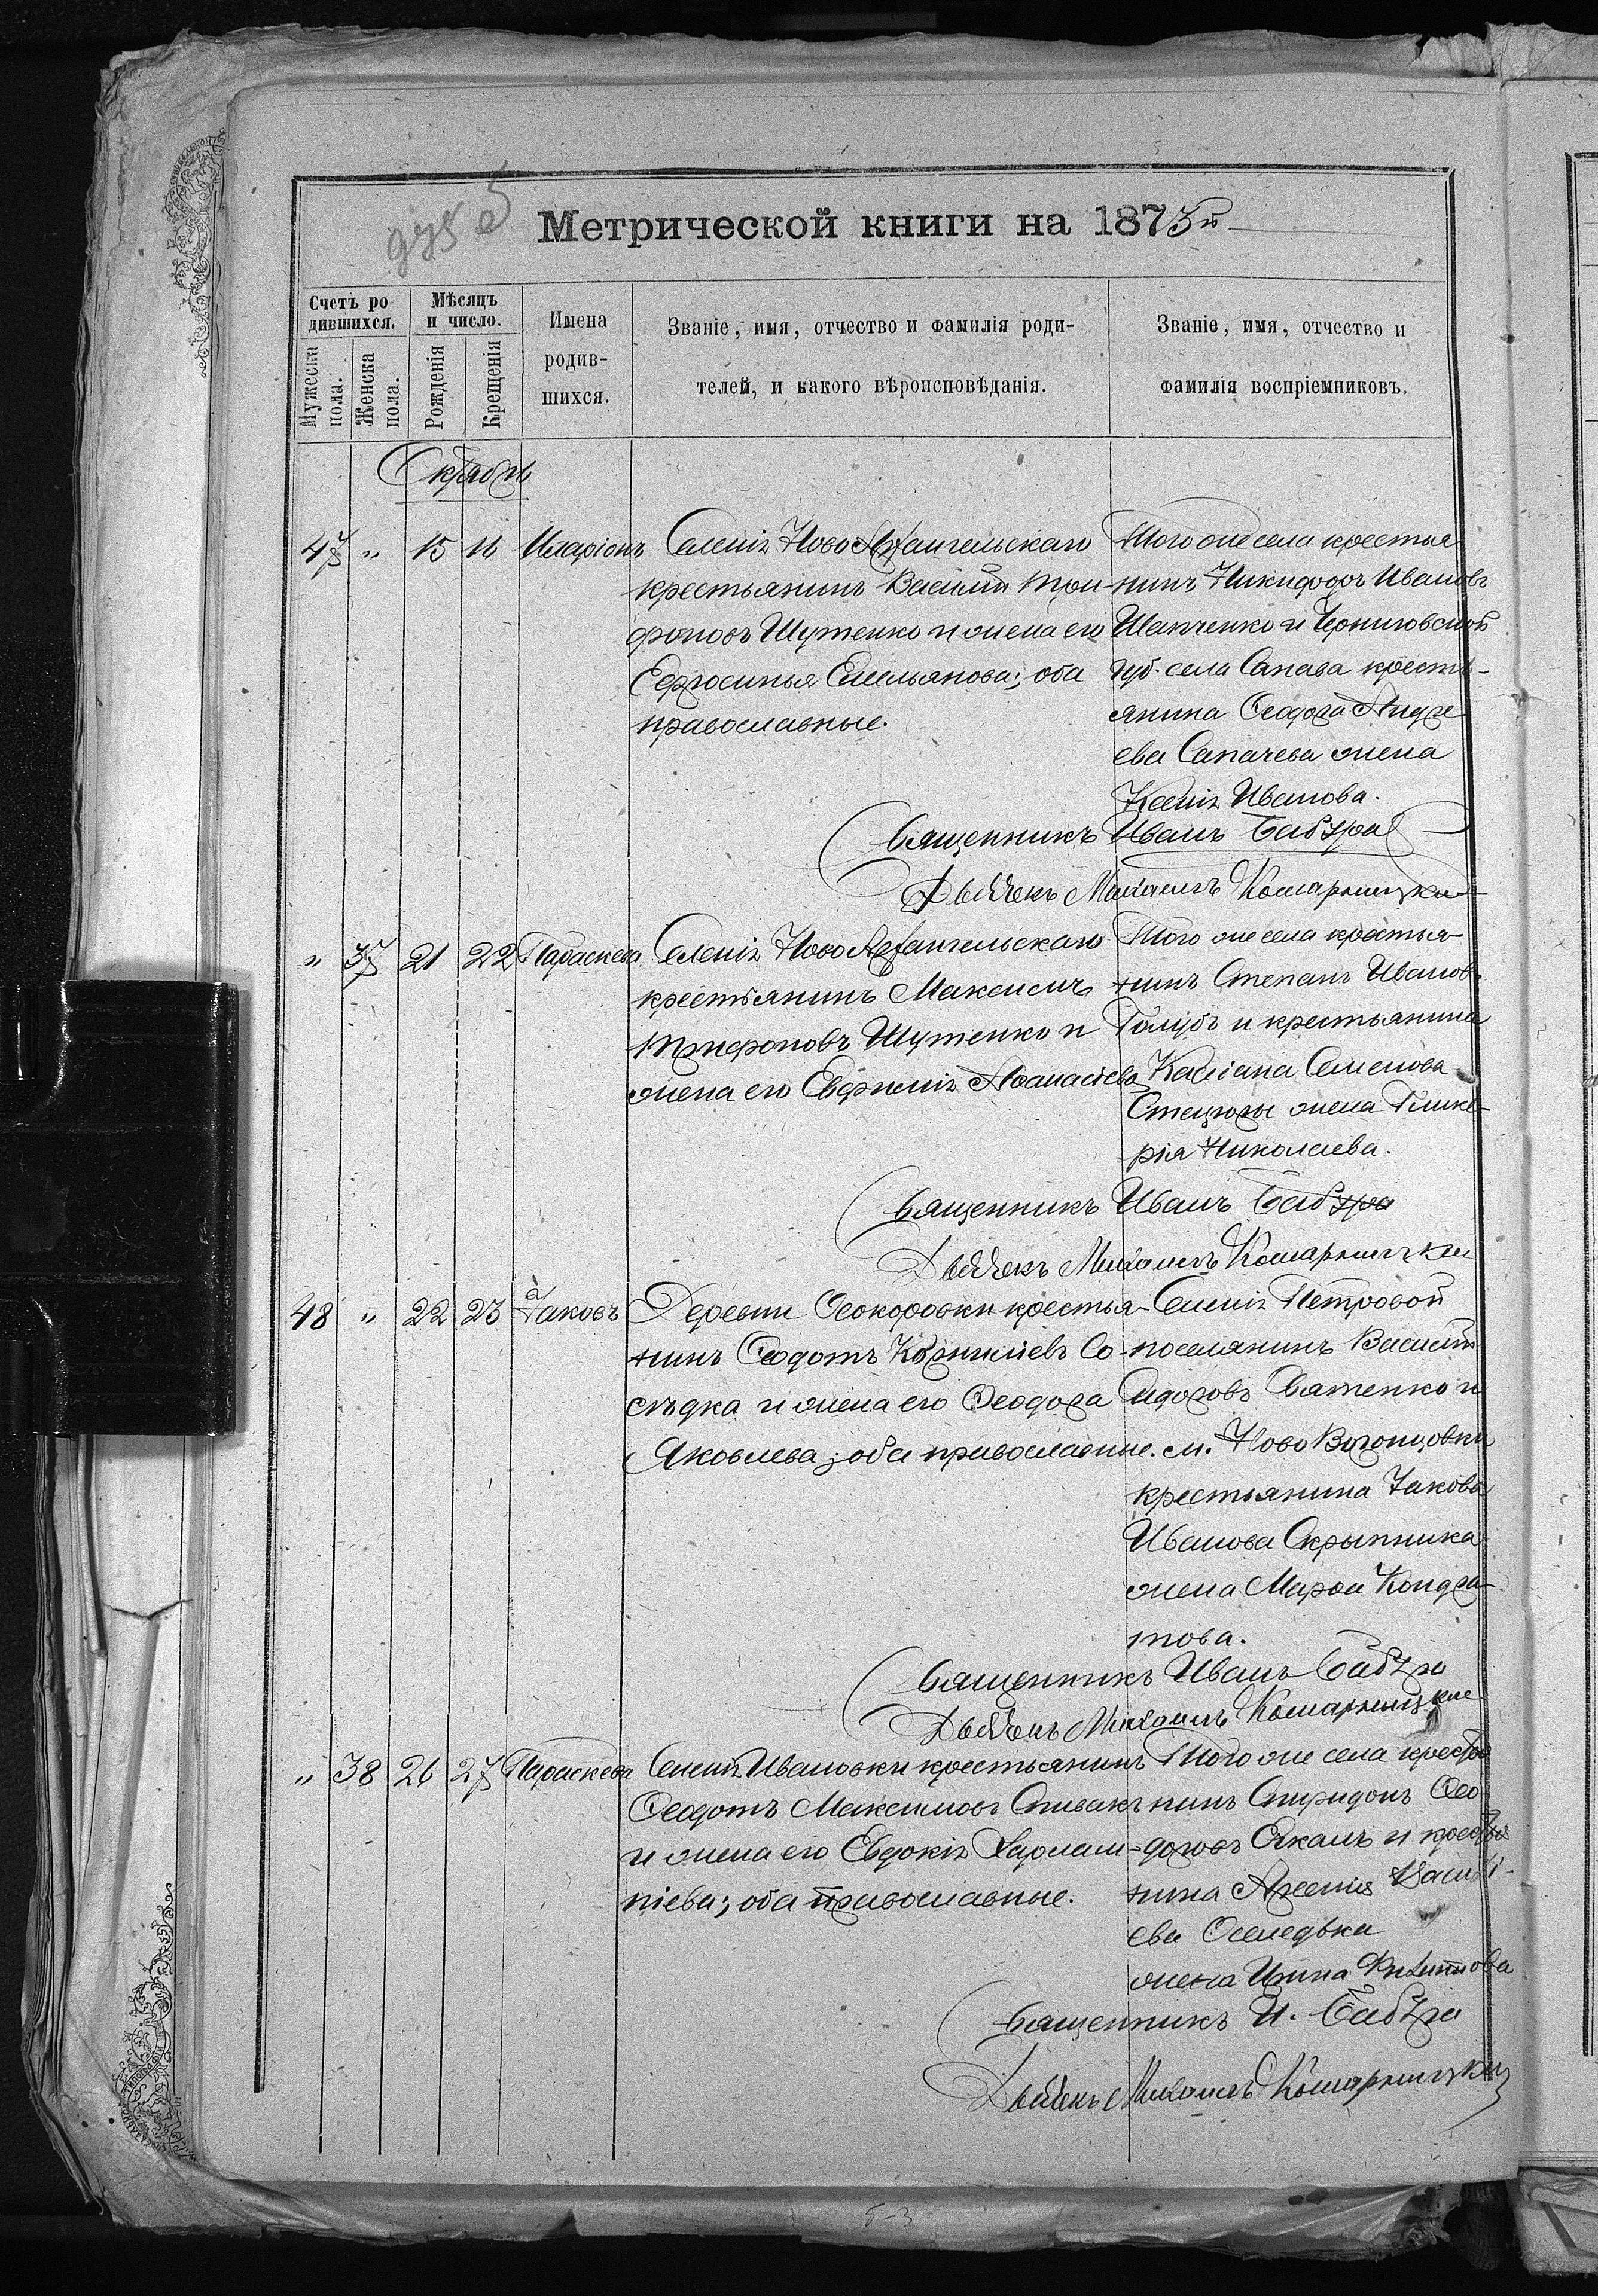 975 5
Метрической книги на 1875й
Счетъ ро-
дившихся.
Мужеска
пола.
Женска
пола.
Мѣсяцъ
и число.
Рожденія
Крещенія
Имена
родив-
шихся.
Званіе, имя, отчество и фамилія роди-
телей, и какого вѣроисповѣданія.
Званіе, имя, отчество и
фамилія воспріемниковъ.
Октябрь
47 " 15 16 Иларіонъ
Селенія Ново Архангельскаго
крестьянинъ Василій Три-
фоновъ Шутенко и жена его
Ефросинья Емельянова; оба
православные.
Того же села крестья-
нинъ Никифоръ Ивановъ
Шапченко и Черниговской
губ. села Сапава кресть-
янина Ѳеодора Андре
ева Сапачева жена
Ксенія Иванова.
Священникъ Иванъ Бабура
Дьячекъ Михаилъ Комарницкій
" 37 21 22 Параскева
Селенія Ново Архангельскаго
крестьянинъ Максимъ
Трифоновъ Шутенко и
жена его Евфимія Аѳанасіева
Того же села крестья-
нинъ Степанъ Ивановъ
Голубъ и крестьянина
Касіана Семенова
Стецюры жена Глике-
рія Николаева.
Священникъ Иванъ Бабура
Дьячекъ Михаилъ Комарницкій
48 " 22 23 Іаковъ
Деревни Осокоровки крестья-
нинъ Ѳеодотъ Корниліевъ Со-
съдка и жена его Ѳеодора
Яковлева; оба православные.
Селенія Петровой
поселянинъ Василій
Сидоровъ Ватенко и
м. Ново Воронцовки
крестьянина Іакова
Иванова Скрыпника
жена Марфа Кондра-
това.
Священникъ Иванъ Бабура
Дьячекъ Михаилъ Комарницкій
" 38 26 27 Параскева
Селенія Ивановки крестьянинъ
Ѳеодотъ Максимовъ Спивакъ
и жена его Евдокія Харлам-
піева; оба православные.
Того же села крестья
нинъ Спиридонъ Ѳео-
доровъ и крестья
нина Арсенія Васили-
ева Оселедька
жена Ирина Филиппова
Священникъ И. Бабура
Дьячекъ Михаилъ Комарницкій
5-3